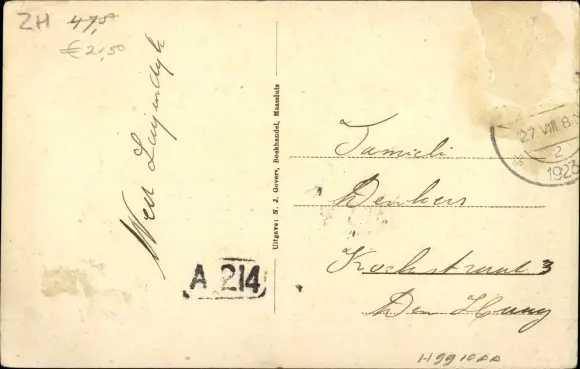 ZH 47,5
€ 2,50
West Luijendijk
Uitgave: N. J. Govers, Boekhandel, Maassluis
A 214
27 VIII 8
2
1923
Familie
Denkers
Kockstraat 3
Den Haag
H9910AA